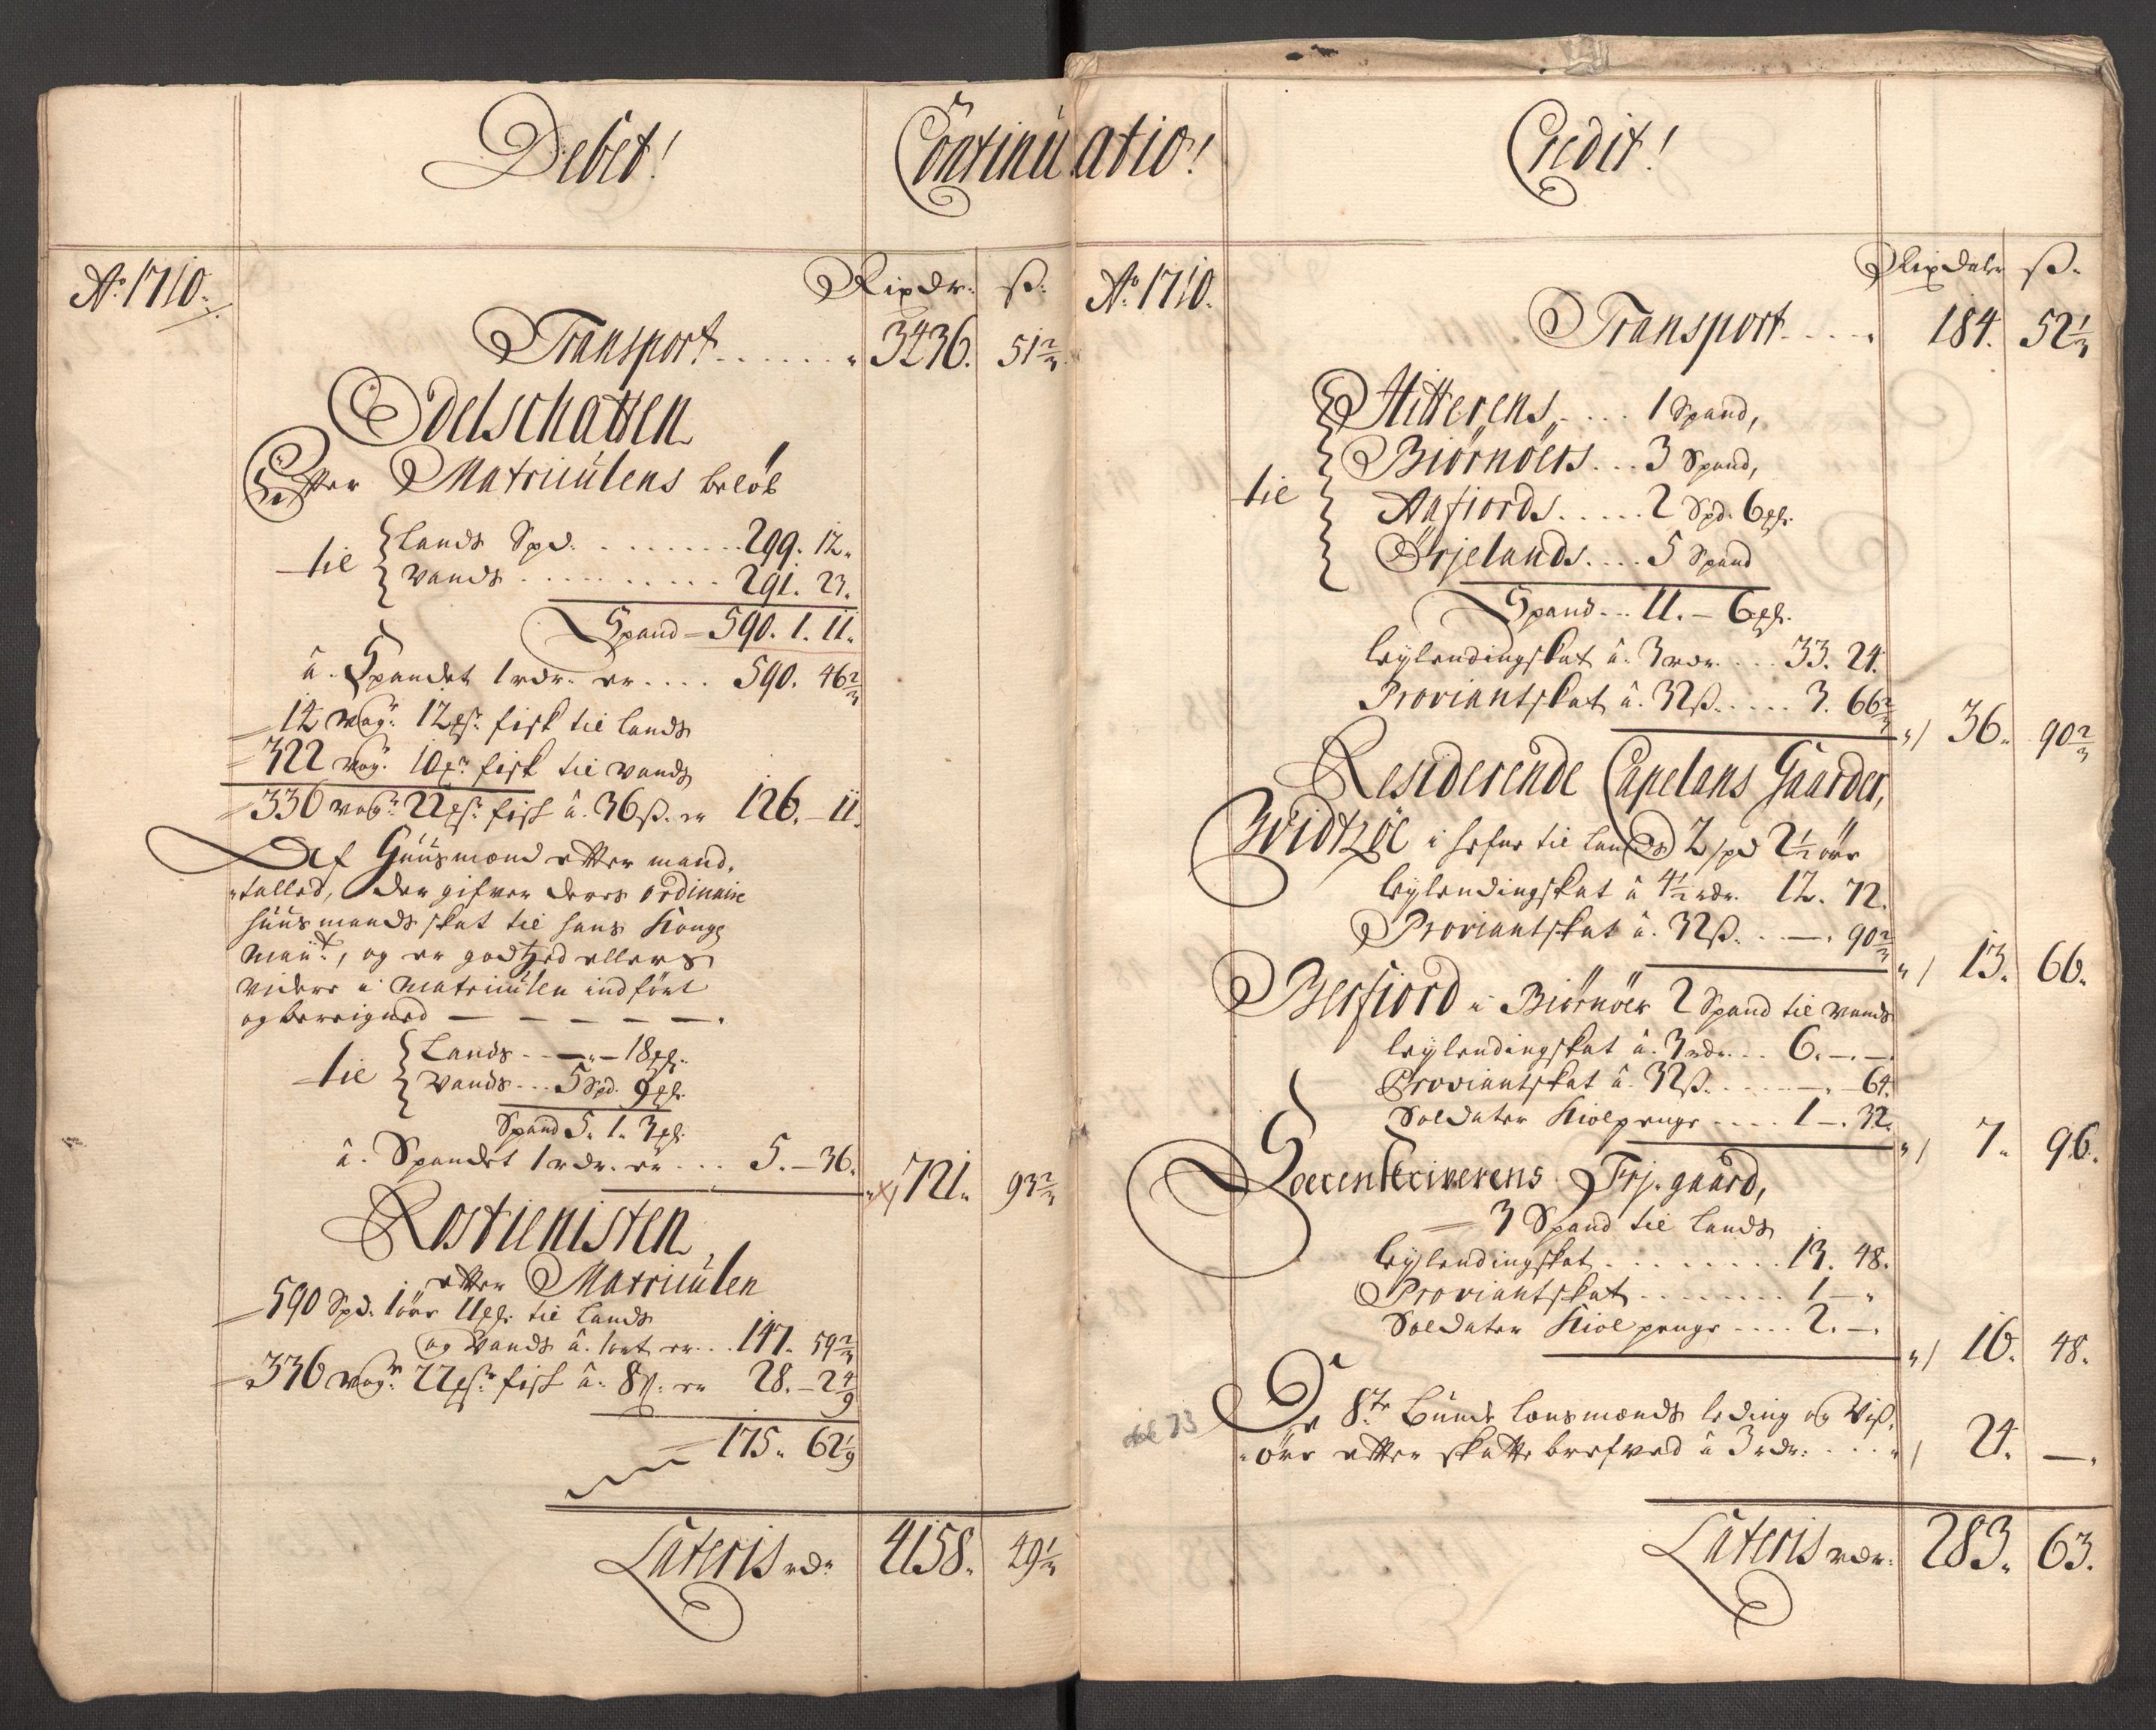 Debet!
Continuatio!
Credit!
Ao. 1710.
Rixdr. ß.
Transport . . . . . . 3436. 51 2/3
Odelschatten
Efter Matriculens beløb
til
Lands Spd. . . . . . . . . 299. 12.
Vands . . . . . . . . . . . 291. 23.
Spand 590. 1. 11.
â Spandet 1 rdr. er . . . . 590. 46 2/3
14 wog. 12 fisk til Lands
322 wog. 10 fisk til Vands
336 wog. 22 fisk â. 36 ß. er 126. - 11.
Af Huusmænd efter mand.
tallet, der gifver deris ordinaire
huusmands skat til hans Kongl
Maiits, og er godtzed ellers
videre i Matriculen indført
og beregned — — — — —.
til
Lands . . — " — 18
Vands . . . 5 Spd. 9
Spand 5. 1. 3
â. Spandet 1 rdr. er . . . 5. — 36.
721. 93 2/3
Rostienisten
efter Matriculen
590 Spd. 1 øre 11 til Lands
og Vands â. 1 ort er . . . 147. 59 2/3
336 wog. 22 fisk â. 8 ß. er 28. — 2 4/9
175. 62 1/9
Lateris rdr 4158. 49 1/3
Ao. 1710.
Rixdaler ß.
Transport . . . . 184. 52 1/3
til
Hitterens . . . . 1 Spand,
Biørnøers . . . 3 Spand,
Aafiords . . . . . 2 Spd. 6
Ørjelands . . . . 5 Spand
Spand . . . 11. — 6
leylendingskat â. 3 rdr. . . . 33. 24.
Proviantskat â. 32 ß. . . . . 3. 66 2/3
36. 90 2/3
Residerende Capelans Gaarder,
Hvidtzøe i hefne til Lands 2 spd 2 1/2 øre
leylendingskat â 4 1/2 rdr. 12. 72.
Proviantskat â. 32 ß. . . —. 90 2/3
13. 66.
Berfiord i Biørnøer 2 Spand til Vands
leylendingskat â. 3 rdr. . . 6. —. —.
Proviantskat â. 32 ß. . . . . . —. 64.
Soldater Kiolpenge . . . . 1 —. 32.
7. 96.
Soerenskriverens Frj. gaard,
3 Spand til Lands
leylendingskat . . . . . . . . . 13. 48.
Proviantskat . . . . . . . . 1 — "
Soldater Kiolpenge . . . . 2. —.
16. 48.
De 8te bunde lensmænds leding og Viß.
øre efter skattebrefved â 3 rdr. . . . . 24. —.
Lateris rdr. 283. 63.